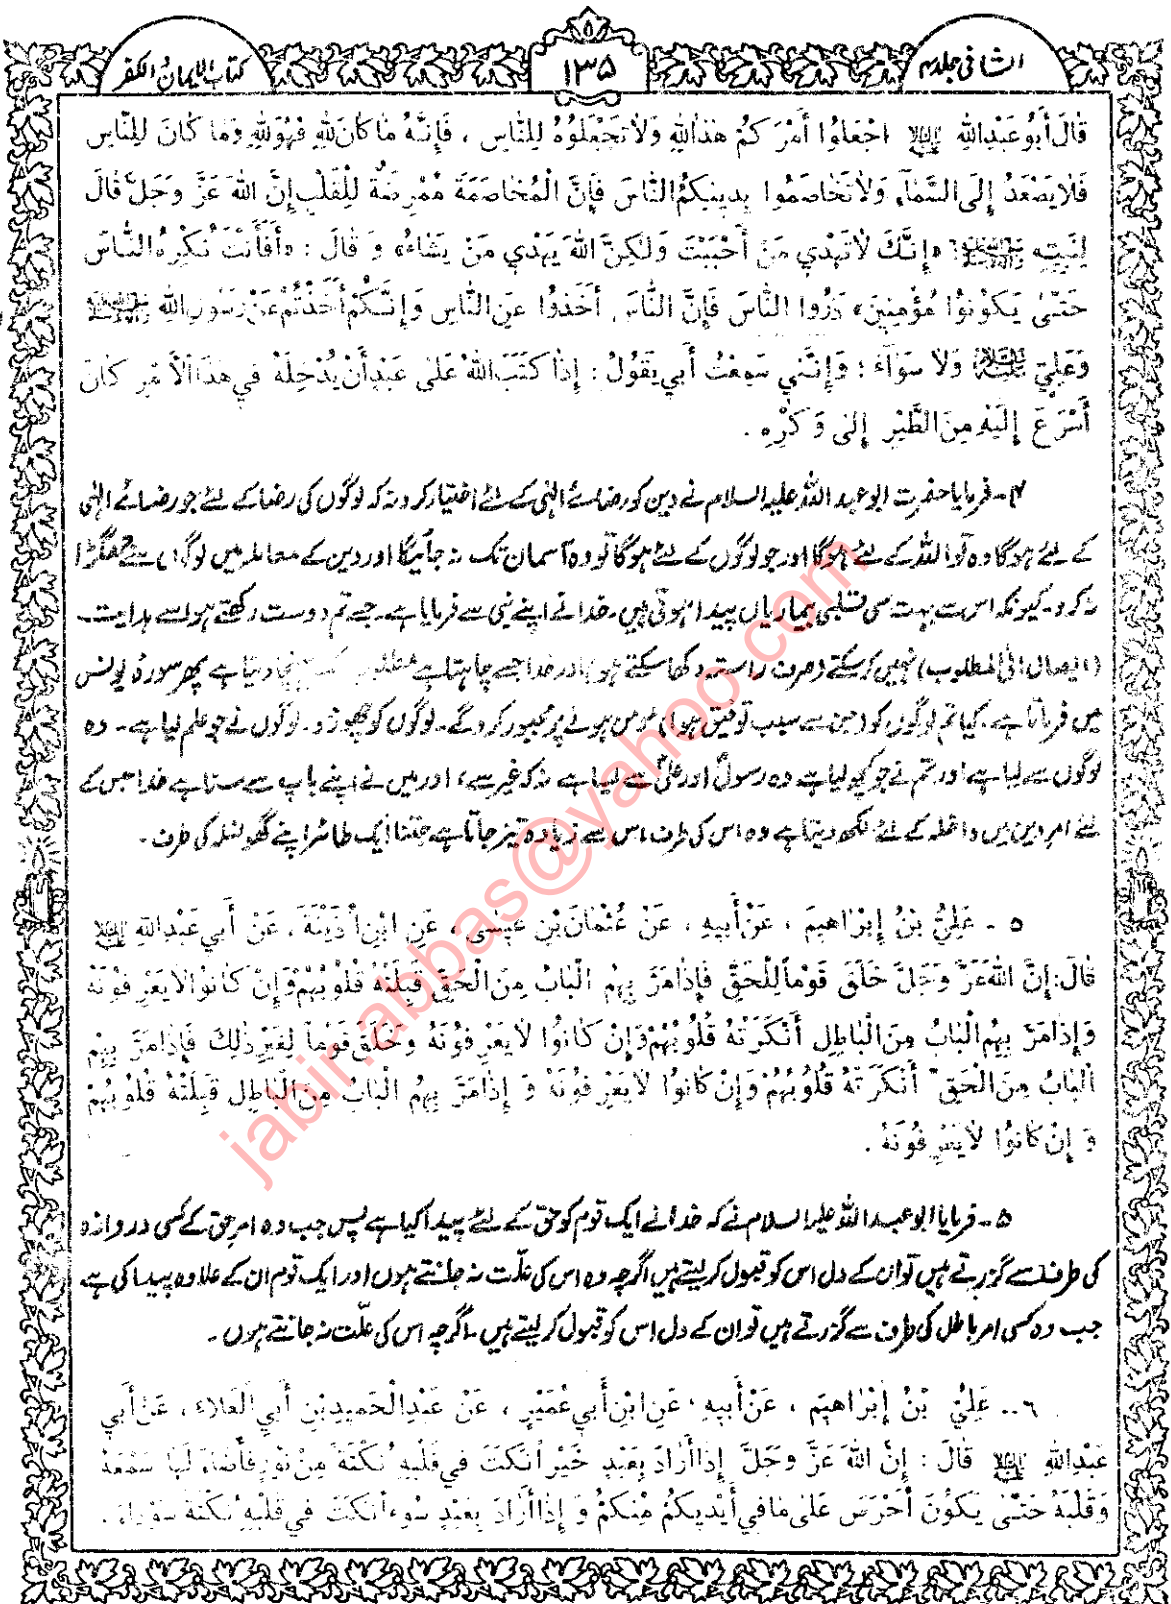 الشافی جلد ۴
۱۳۵
کتاب الایمان و الکفر
قَالَ أَبُو عَبْدِاللهِ عليه السلام اجْعَلُوا أَمْرَكُمْ هَذَا لِلّٰهِ وَلَا تَجْعَلُوهُ لِلنَّاسِ ، فَإِنَّهُ مَا كَانَ لِلّٰهِ فَهُوَ لِلّٰهِ وَمَا كَانَ لِلنَّاسِ
فَلَا يَصْعَدُ إِلَى السَّمَاءِ وَلَا تُخَاصِمُوا بِدِينِكُمُ النَّاسَ فَإِنَّ الْمُخَاصَمَةَ مُمْرِضَةٌ لِلْقَلْبِ إِنَّ اللهَ عَزَّ وَجَلَّ قَالَ
لِنَبِيِّهِ ﷺ : «إِنَّكَ لَا تَهْدِي مَنْ أَحْبَبْتَ وَلٰكِنَّ اللهَ يَهْدِي مَنْ يَشَاءُ» وَ قَالَ : «أَفَأَنْتَ تُكْرِهُ النَّاسَ
حَتّىٰ يَكُونُوا مُؤْمِنِينَ» ذَرُوا النَّاسَ فَإِنَّ النَّاسَ أَخَذُوا عَنِ النَّاسِ وَإِنَّكُمْ أَخَذْتُمْ عَنْ رَسُولِ اللهِ ﷺ
وَعَلِيٍّ عليه السلام وَلَا سَوَاءَ ؛ وَإِنَّنِي سَمِعْتُ أَبِي يَقُولُ : إِذَا كَتَبَ اللهُ عَلَى عَبْدٍ أَنْ يُدْخِلَهُ فِي هَذَا الْأَمْرِ كَانَ
أَسْرَعَ إِلَيْهِ مِنَ الطَّيْرِ إِلَى وَكْرِهِ .
۴۔ فرمایا حضرت ابو عبد اللہ علیہ السلام نے دین کو رضائے الٰہی کے لئے اختیار کرو نہ کہ لوگوں کی رضا کے لئے جو رضائے الٰہی
کے لئے ہوگا وہ تو اللہ کے لئے ہوگا اور جو لوگوں کے لئے ہوگا تو وہ آسمان تک نہ جائیگا اور دین کے معاملہ میں لوگوں سے جھگڑا
نہ کرو۔ کیونکہ اس سے بہت سی قلبی بیماریاں پیدا ہوتی ہیں۔ خدا نے اپنے نبی سے فرمایا ہے۔ جسے تم دوست رکھتے ہو اسے ہدایت
(ایصال الی المطلوب) نہیں کر سکتے (صرف راستہ دکھا سکتے ہو) اور خدا جسے چاہتا ہے مطلوب دیتا ہے پھر سورہ یونس
میں فرماتا ہے۔ کیا تم لوگوں کو (جن سے سبب توفیق ہو) مومن ہونے پر مجبور کرو گے۔ لوگوں کو چھوڑ دو۔ لوگوں نے جو علم لیا ہے۔ وہ
لوگوں سے لیا ہے اور تم نے جو کچھ لیا ہے وہ رسولؐ اور علیؑ سے لیا ہے نہ کہ غیر سے، اور میں نے اپنے باپ سے سنا ہے خدا جس کے
لئے امر دین میں داخلہ کے لئے لکھ دیتا ہے وہ اس کی طرف اس سے زیادہ تیز جاتا ہے جتنا ایک طائر اپنے گھونسلہ کی طرف۔
٥ ـ عَلِيُّ بْنُ إِبْرَاهِيمَ ، عَنْ أَبِيهِ ، عَنْ عُثْمَانَ بْنِ عِيسَى ، عَنِ ابْنِ أُذَيْنَةَ ، عَنْ أَبِي عَبْدِاللهِ عليه السلام
قَالَ: إِنَّ اللهَ عَزَّ وَجَلَّ خَلَقَ قَوْماً لِلْحَقِّ فَإِذَا مَرَّ بِهِمُ الْبَابُ مِنَ الْحَقِّ قَبِلَتْهُ قُلُوبُهُمْ وَإِنْ كَانُوا لَا يَعْرِفُونَهُ
وَإِذَا مَرَّ بِهِمُ الْبَابُ مِنَ الْبَاطِلِ أَنْكَرَتْهُ قُلُوبُهُمْ وَإِنْ كَانُوا لَا يَعْرِفُونَهُ وَخَلَقَ قَوْماً لِغَيْرِ ذٰلِكَ فَإِذَا مَرَّ بِهِمُ
الْبَابُ مِنَ الْحَقِّ أَنْكَرَتْهُ قُلُوبُهُمْ وَإِنْ كَانُوا لَا يَعْرِفُونَهُ وَ إِذَا مَرَّ بِهِمُ الْبَابُ مِنَ الْبَاطِلِ قَبِلَتْهُ قُلُوبُهُمْ
وَ إِنْ كَانُوا لَا يَعْرِفُونَهُ .
۵۔ فرمایا ابو عبد اللہ علیہ السلام نے کہ خدا نے ایک قوم کو حق کے لئے پیدا کیا ہے پس جب وہ امر حق کے کسی دروازہ
کی طرف سے گزرتے ہیں تو ان کے دل اس کو قبول کر لیتے ہیں اگرچہ وہ اس کی علّت نہ جانتے ہوں اور ایک قوم ان کے علاوہ پیدا کی ہے
جب وہ کسی امر باطل کی طرف سے گزرتے ہیں تو ان کے دل اس کو قبول کر لیتے ہیں۔ اگرچہ اس کی علّت نہ جانتے ہوں۔
٦ ـ عَلِيُّ بْنُ إِبْرَاهِيمَ ، عَنْ أَبِيهِ ، عَنِ ابْنِ أَبِي عُمَيْرٍ ، عَنْ عَبْدِ الْحَمِيدِ بْنِ أَبِي الْعَلَاءِ ، عَنْ أَبِي
عَبْدِاللهِ عليه السلام قَالَ : إِنَّ اللهَ عَزَّ وَجَلَّ إِذَا أَرَادَ بِعَبْدٍ خَيْراً نَكَتَ فِي قَلْبِهِ نُكْتَةً مِنْ نُورٍ فَأَضَاءَ لَهَا سَمْعُهُ
وَ قَلْبُهُ حَتَّىٰ يَكُونَ أَحْرَصَ عَلَىٰ مَا فِي أَيْدِيكُمْ مِنْكُمْ وَ إِذَا أَرَادَ بِعَبْدٍ سُوءاً نَكَتَ فِي قَلْبِهِ نُكْتَةً سَوْدَاءَ .
jabir.abbas@yahoo.com